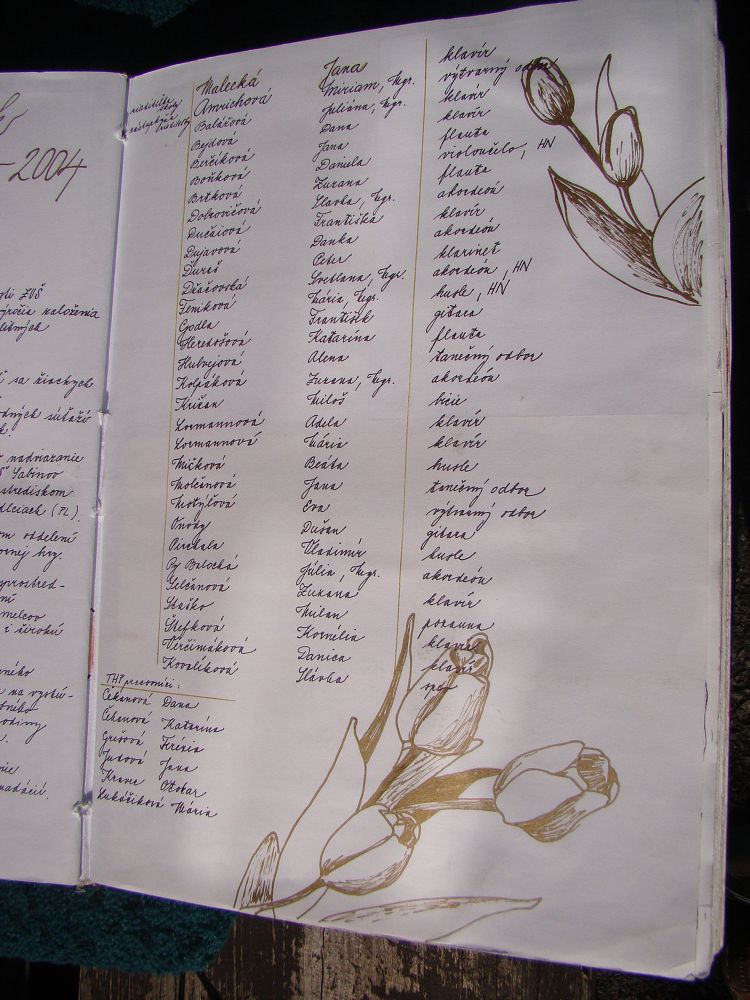 -2004
ZUŠ
výročia založenia
sa žiackych
súťaží
nadviazanie
Sabinov
strediskom
(TL).
oddelení
hry.
i širokú
na vystú-
Malecká Jana klavír
Amrichová Miriam, Mgr. výtvarný odbor
Balážová Juliána, Mgr. klavír
Bejdová Dana klavír
Berčíková Jana flauta
Boňková Daniela violončelo, HN
Brtková Zuzana flauta
Dobrovičová Slavka, Mgr. akordeón
Dučaiová Františka klavír
Dujavová Danka akordeón
Ďureš Peter klarinet
Džačovská Svetlana, Mgr. akordeón, HN
Feníková Mária, Mgr. husle, HN
Godla František gitara
Heredošová Katarína flauta
Hubvejová Alena tanečný odbor
Kolpáková Zuzana, Mgr. akordeón
Križan Miloš bicie
Lormannová Adela klavír
Lormannová Mária klavír
Mičková Beáta husle
Molčanová Jana tanečný odbor
Motýľová Eva výtvarný odbor
Ónody Dušan gitara
Pirchala Vladimír husle
Py Balocká Júlia, Mgr. akordeón
Selčanová Zuzana klavír
Staško Milan pozauna
Štefková Kornélia klavír
Verčimáková Danica klavír
Kovalíková Slávka spev
THP pracovníci:
Čekanová Dana
Čekanová Katarína
Grešová Terézia
Judová Jana
Kravec Otokar
Lukáčiková Mária